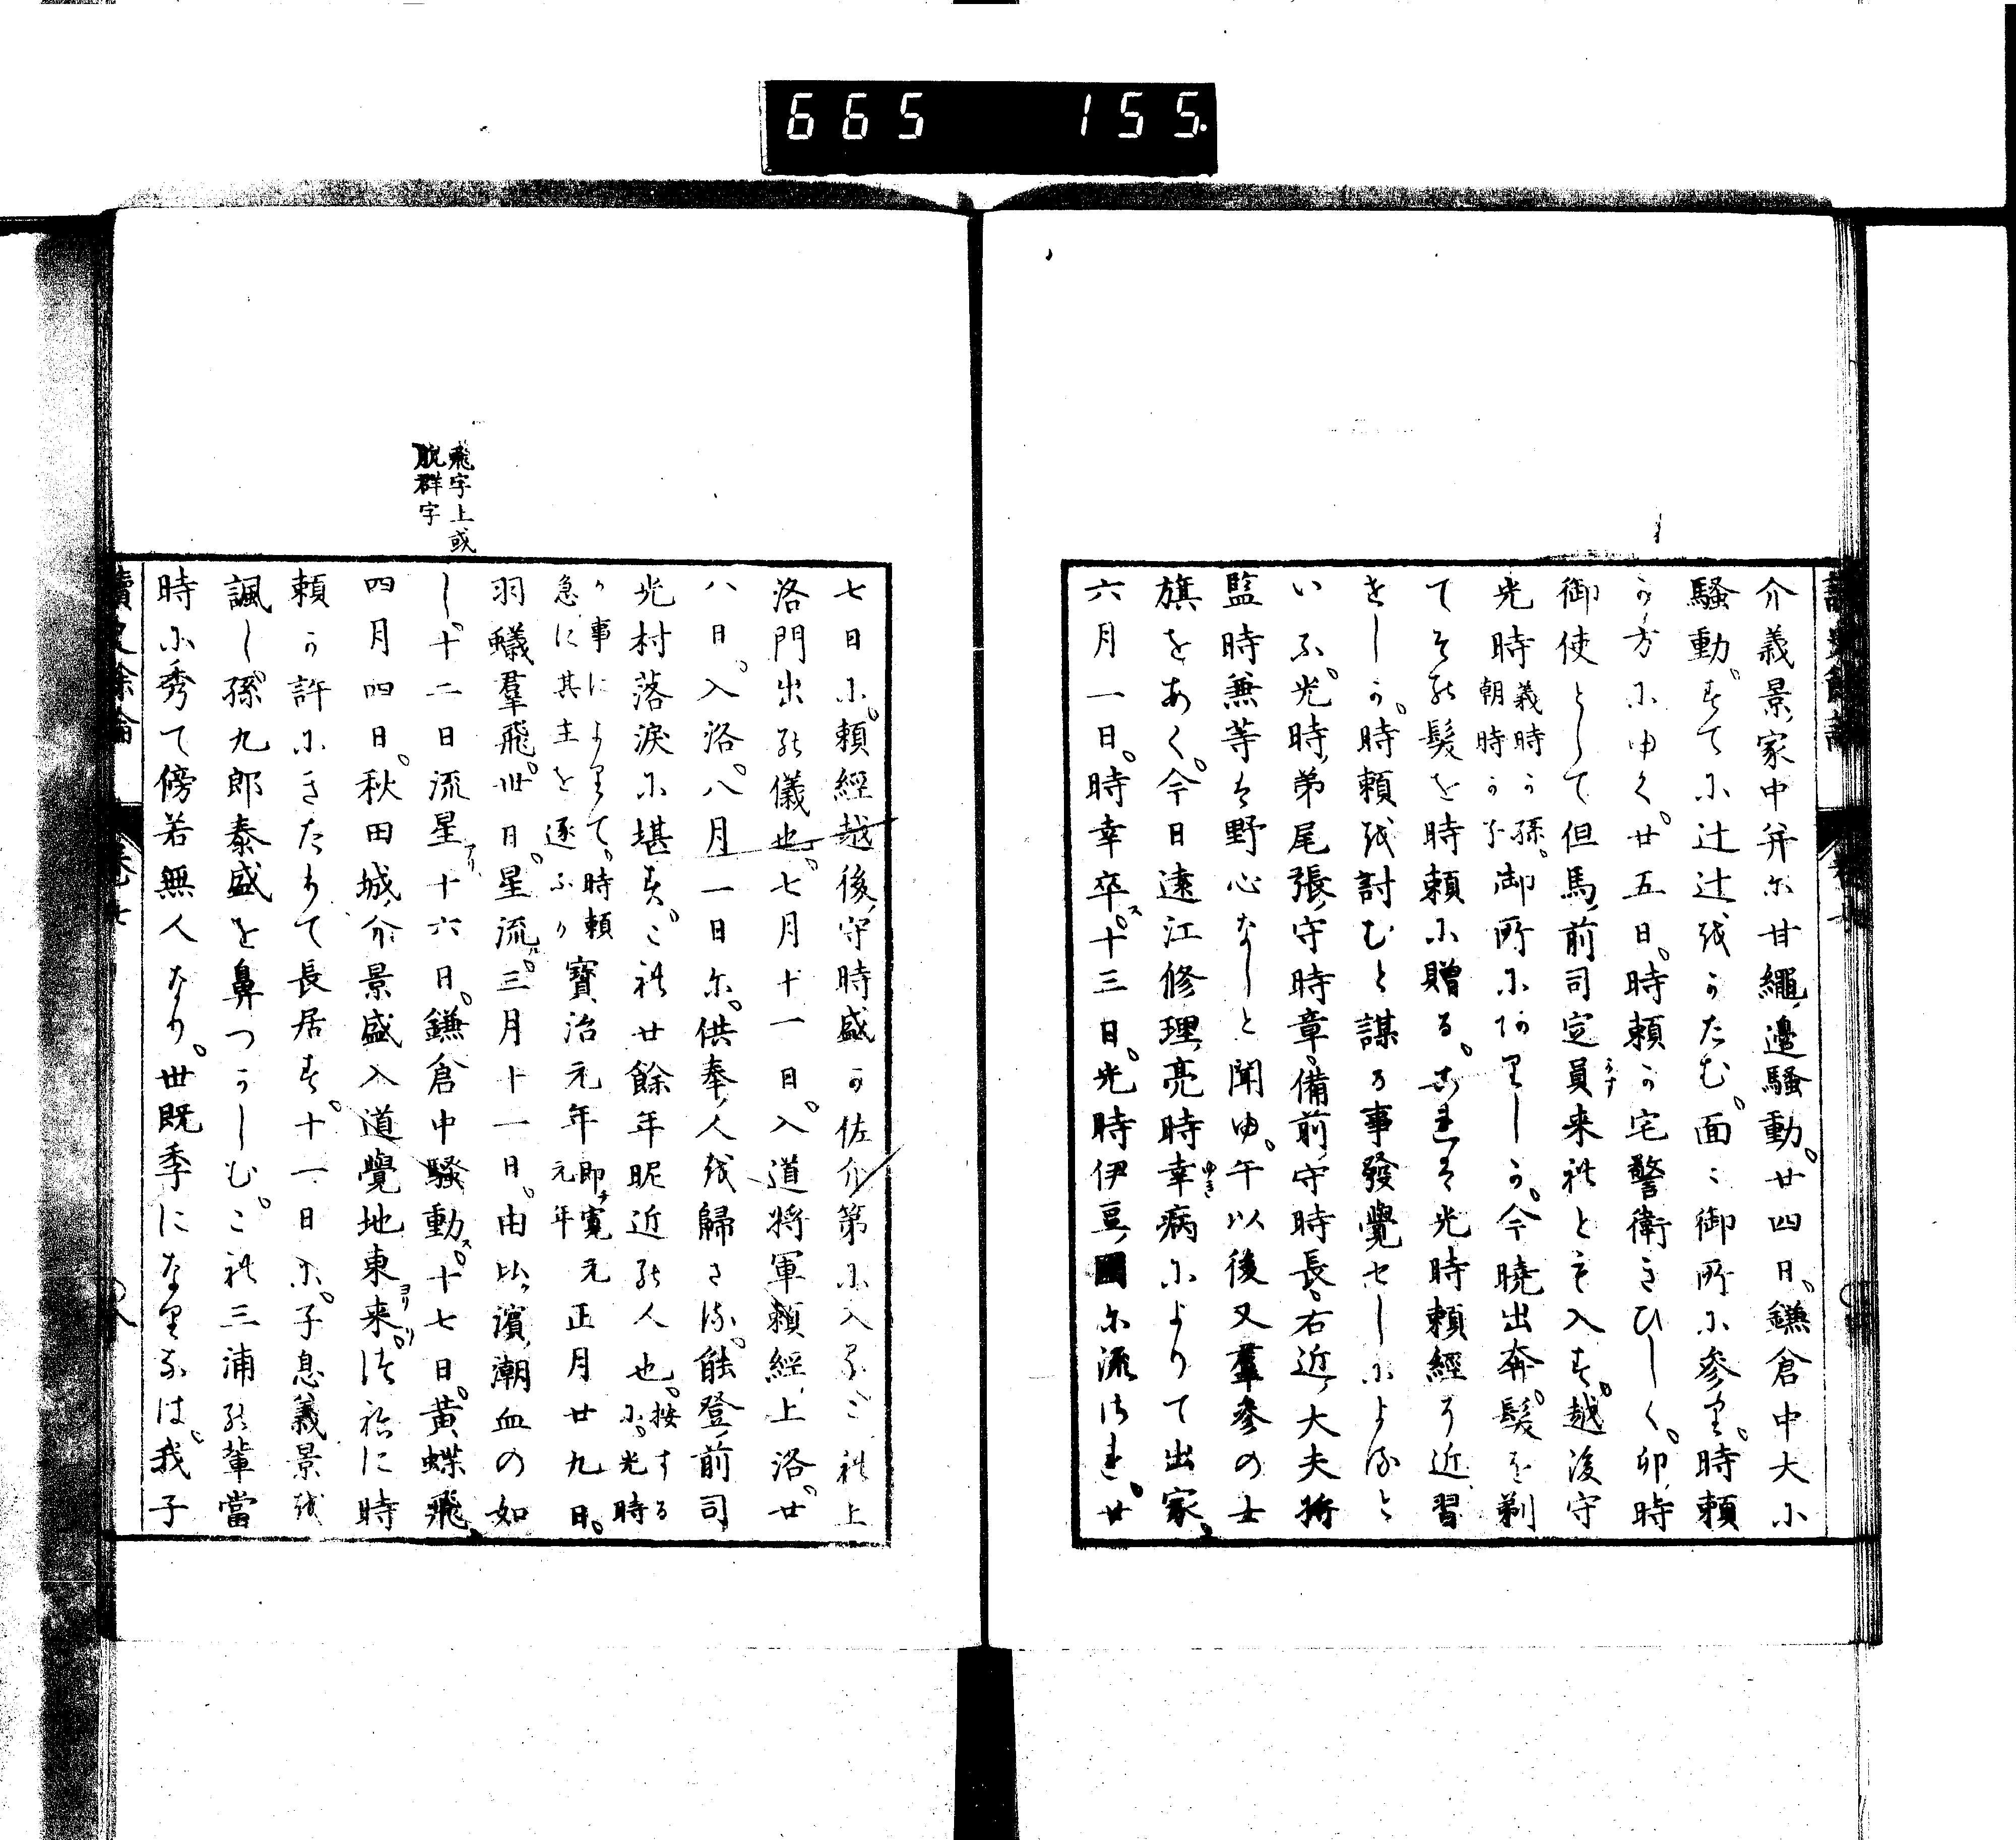 665 155.
介義景家中并に甘繩邊騷動。廿四日。鎌倉中大に
騷動。すてに辻辻をかたむ。面々御所に參り。時頼
か方にゆく。廿五日。時頼か宅警衛きひしく。卯時
御使として但馬前司定員来れとも入す。越後守
光時義時か孫。朝時か子御所にありしか。今曉出奔。髮を剃
てその髮を時頼に贈る。これは光時頼經か近習
せしか。時頼を討むと謀る事發覺せしによると
いふ。光時弟尾張守時章。備前守時長。右近大夫将
監時兼等は野心なしと聞ゆ。午以後又羣參の士
旗をあく。今日遠江修理亮時幸病によりて出家。
六月一日。時幸卒ス。十三日。光時伊豆國に流さる。廿
七日に。頼經越後守時盛か佐介第に入る。これ上
洛門出の儀也。七月十一日。入道将軍頼經上洛。廿
八日。入洛。八月一日に。供奉人を歸さる。能登前司
光村落淚に堪す。これ廿餘年昵近の人也。按するに。光時
か事によりて。時頼急に其主を逐ふか寶治元年即チ寛元元年正月廿九日。
羽蟻羣飛。卅日。星流ル。三月十一日。由比濱潮血の如
し。十二日流星アリ。十六日。鎌倉中騷動ス。十七日。黃蝶飛。
飛字上或
脫群字
四月四日。秋田城介景盛入道覺地東来。つねに時
頼か許にきたりて長居す。十一日に。子息義景を
諷し。孫九郎泰盛を鼻つかしむ。これ三浦の輩當
時に秀て傍若無人なり。世既季になりなは。我子
讀史餘論 卷七